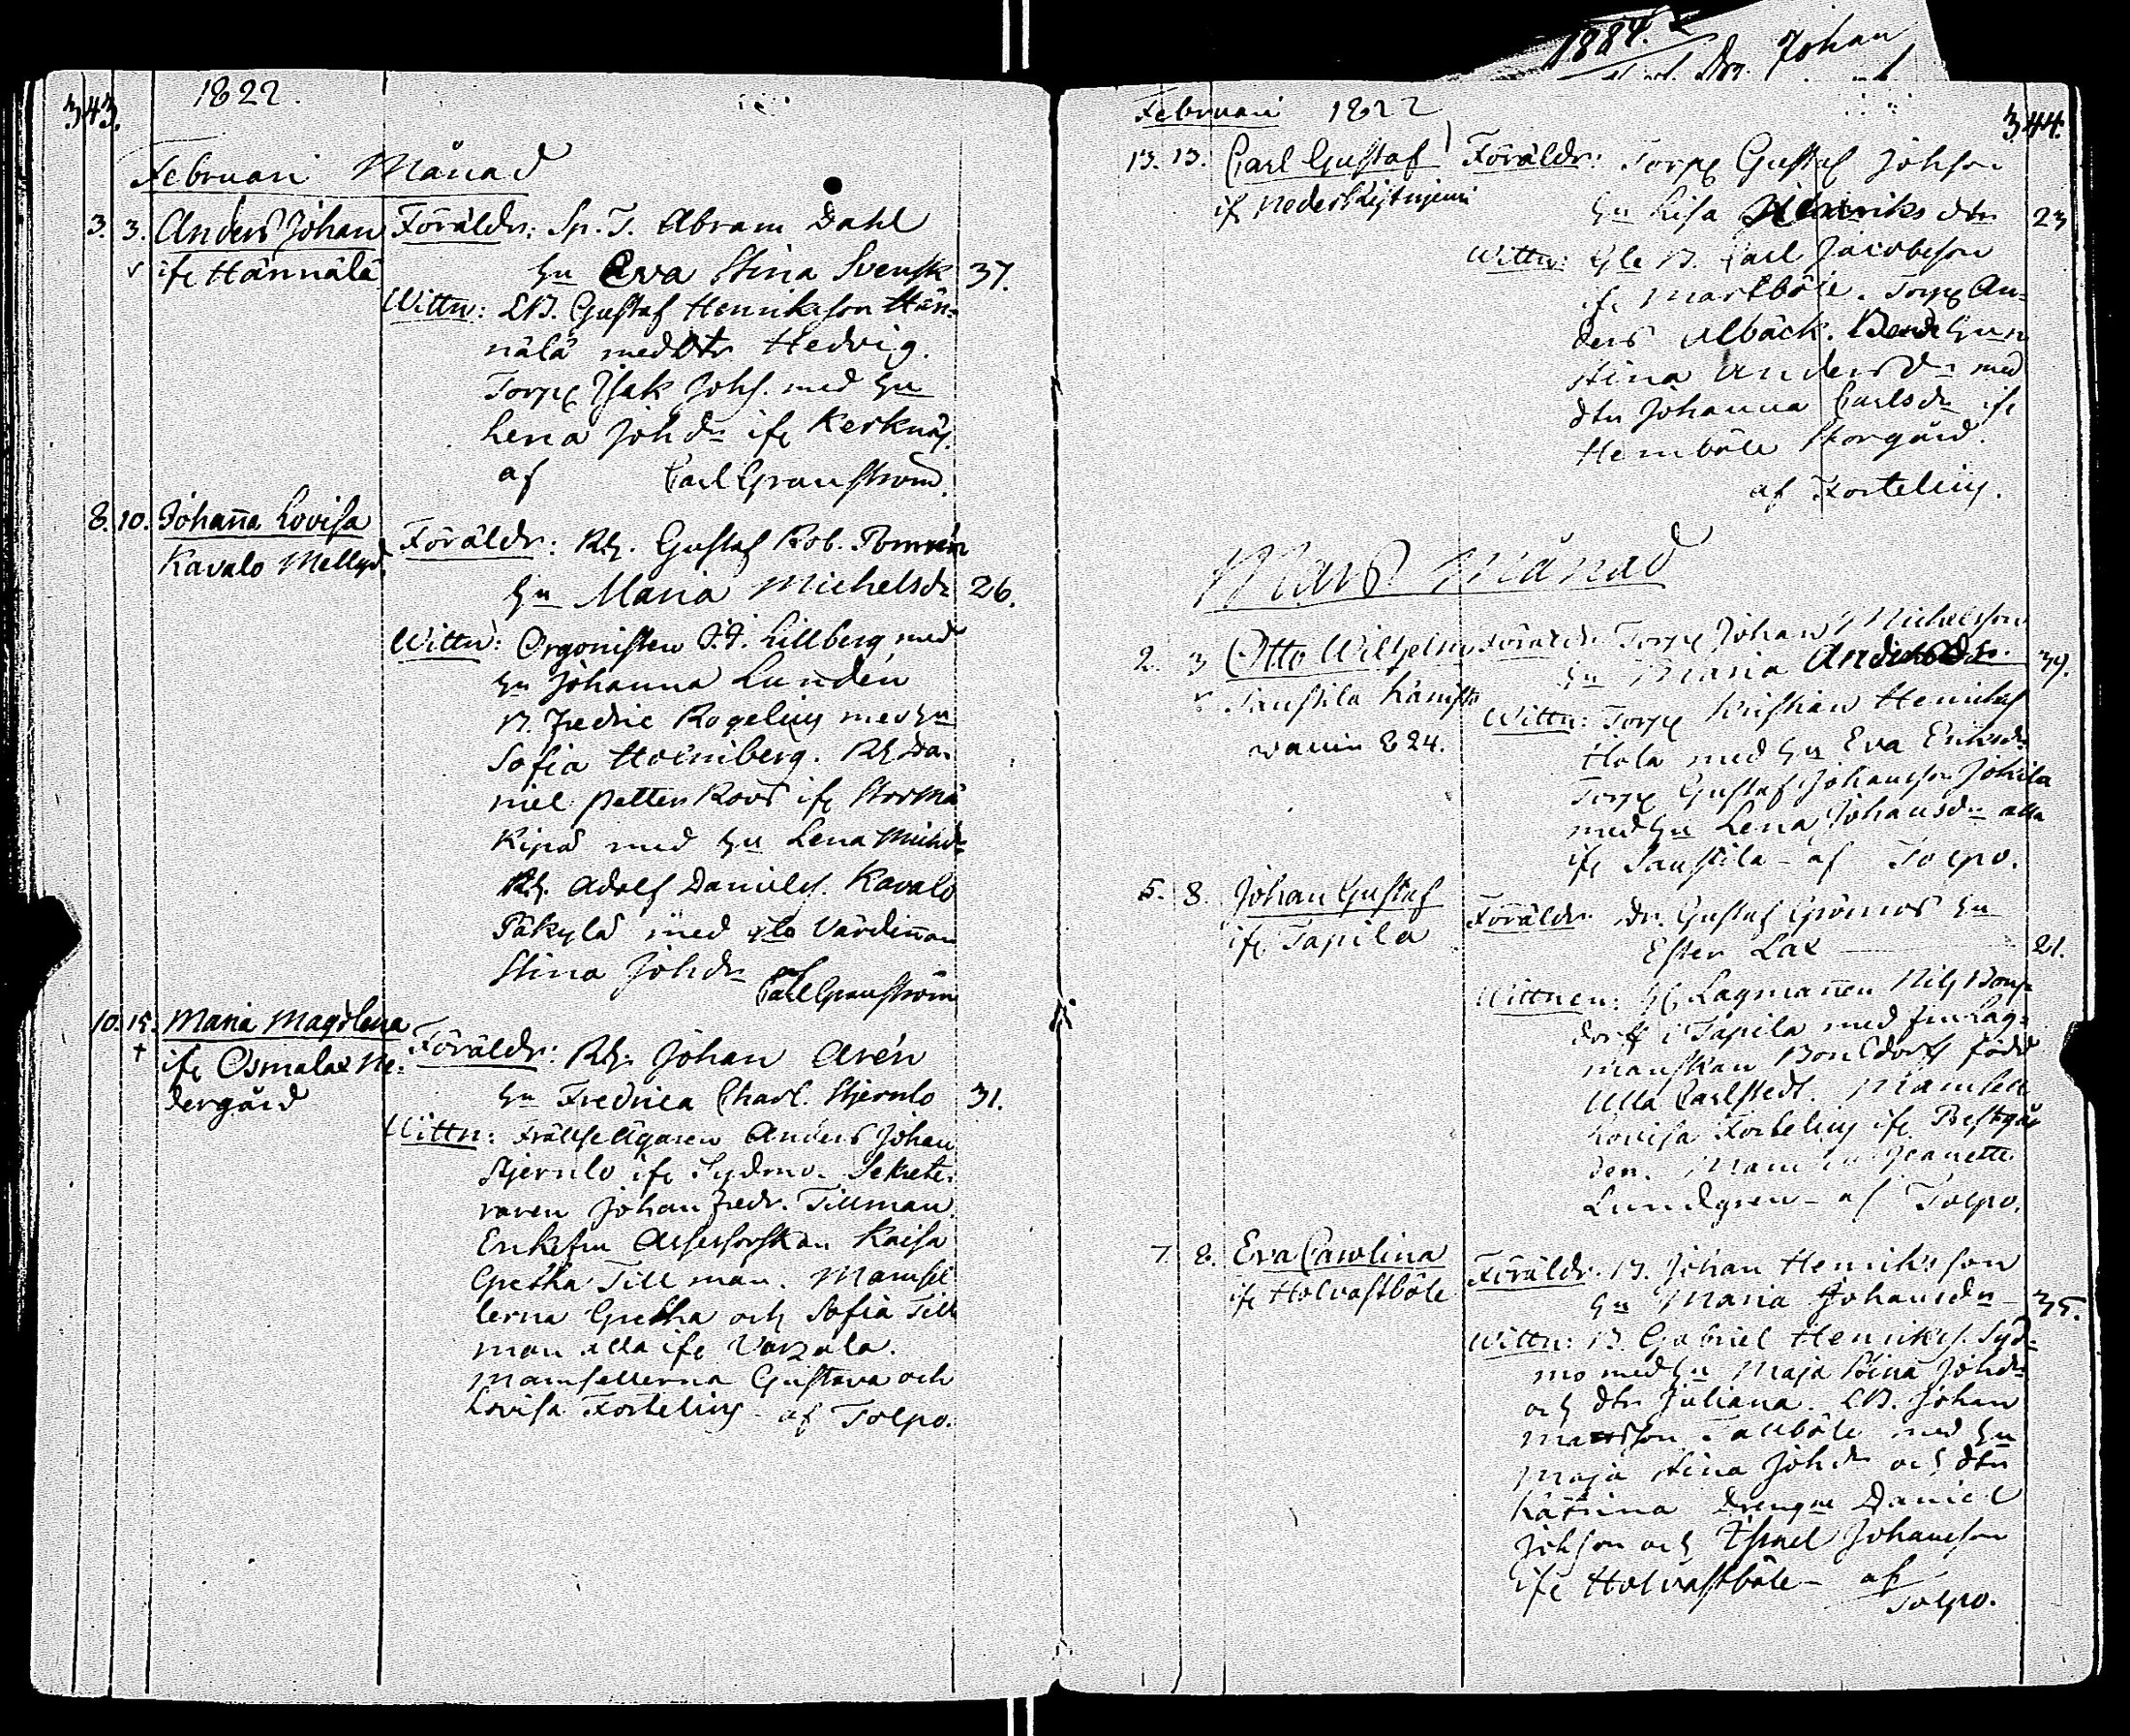 343.
1822.
Februari Månad
3. 3. Anders Johan
ifr Hännälä
Föräldr: Sp. T. Abram Dahl
hu Eva Stina Svensk 37.
Wittn: LB. Gustaf Henriksson Hän-
nälä med dtr Hedvig.
Torp Isak Johs. med hu
Lena Johdr ifr Kerknäs
af Carl Granström.
8. 10. Johanna Lovisa
Kavalo Mellgd.
Föräldr: Rh. Gustaf Rob.
hu Maria Michelsdr 26.
Wittn: Orgonisten Lillberg med
hu Johanna Lundén
B. Fredric Rogelius med hu
Sofia Holmberg. Rh Da-
niel Petters Roos ifr
Kipas med hu Lena Michdr
Rh. Adolf Daniels. Kavalo
Päkylä med Värdinnan
Stina Johdr af
Carl Granström
10. 15. Maria Magdlena
ifr Osmalax Ne-
dergård
Föräldr: Rh. Johan Arén
hu Fredrica Charl. Stjernlo 31.
Wittn: Frälseägaren Anders Johan
Stjernlo ifr Sydmo. Sekrete-
raren Johan Fredr. Tillman
Enkefru Assessorskan Kaisa
Gretha Tillman. Mamsel
lerna Gretha och Sofia Till
man alla ifr Varzala.
Mamsellerna Gustava och
Lovisa Fortelius af Tolpo.
1884.
Johan
Februari 1822
344.
13. 13. Carl Gustaf
ifr
Föräldr: Torp Gustaf Johsson
hu Lisa Henriks dtr 23
Wittn: Gle B. Carl Jacobsson
ifr Martböle. Torp An-
ders Albäck. hun
Stina Andersdr med
dtr Johanna Carlsdr ifr
Hemböle Storgård.
af Fortelius.
Mars Månad
2. 3 Otto Wilhelm
Föräldr: Torp Johan Michelsson
hu Maria Andersdr. 39.
Wittn: Torp Kristian Henriks
Hola med hu Eva Eriksdr
Torp Gustaf Johansson Johila
med hu Lena Johansdr alla
ifr af Tolpo.
5. 8. Johan Gustaf
ifr Tapila
Föräldr Dr. Gustaf Grönroos hu
Ester Lax 21.
Wittnen: Hr Lagmannen Nils Bons
dorff i Tapila med fru Lag-
manskan Bonsdorff född
Ulla Carlstedt. Mamsell
Lovisa Fortelius ifr Prestgår
den. Mams Jeanette
Lundgren - af Tolpo.
7. 8. Eva Carolina
ifr Holvastböle
Föräldr. B. Johan Henriksson
hu Maria Johansdr 35.
Wittn: B. Gabriel Henriks. Syd-
mo med hu Maja Stina Johdr
och dtr Juliana. LB. Johan
Matsson Tallböle med hu
Maja Stina Johdr och dtr
Katrina Drengne Daniel
Johsson och Ismel Johansson
ifr Holvastböle - af
Tolpo.